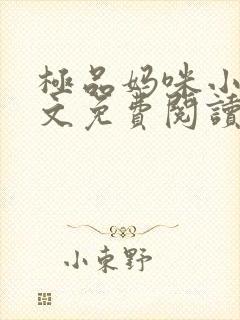 極品妈咪小
文免費閱讀
小東野